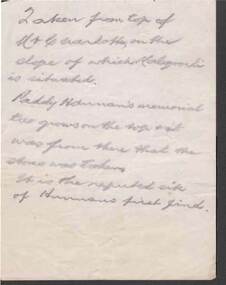 Taken from top of
Mt Charlotte, on the
slope of which Kalgoorlie
is situated.
Paddy Hannan's memorial
tree grows on the top & it
was from there that the
above was taken.
It is the reputed site
of Hannans first find.